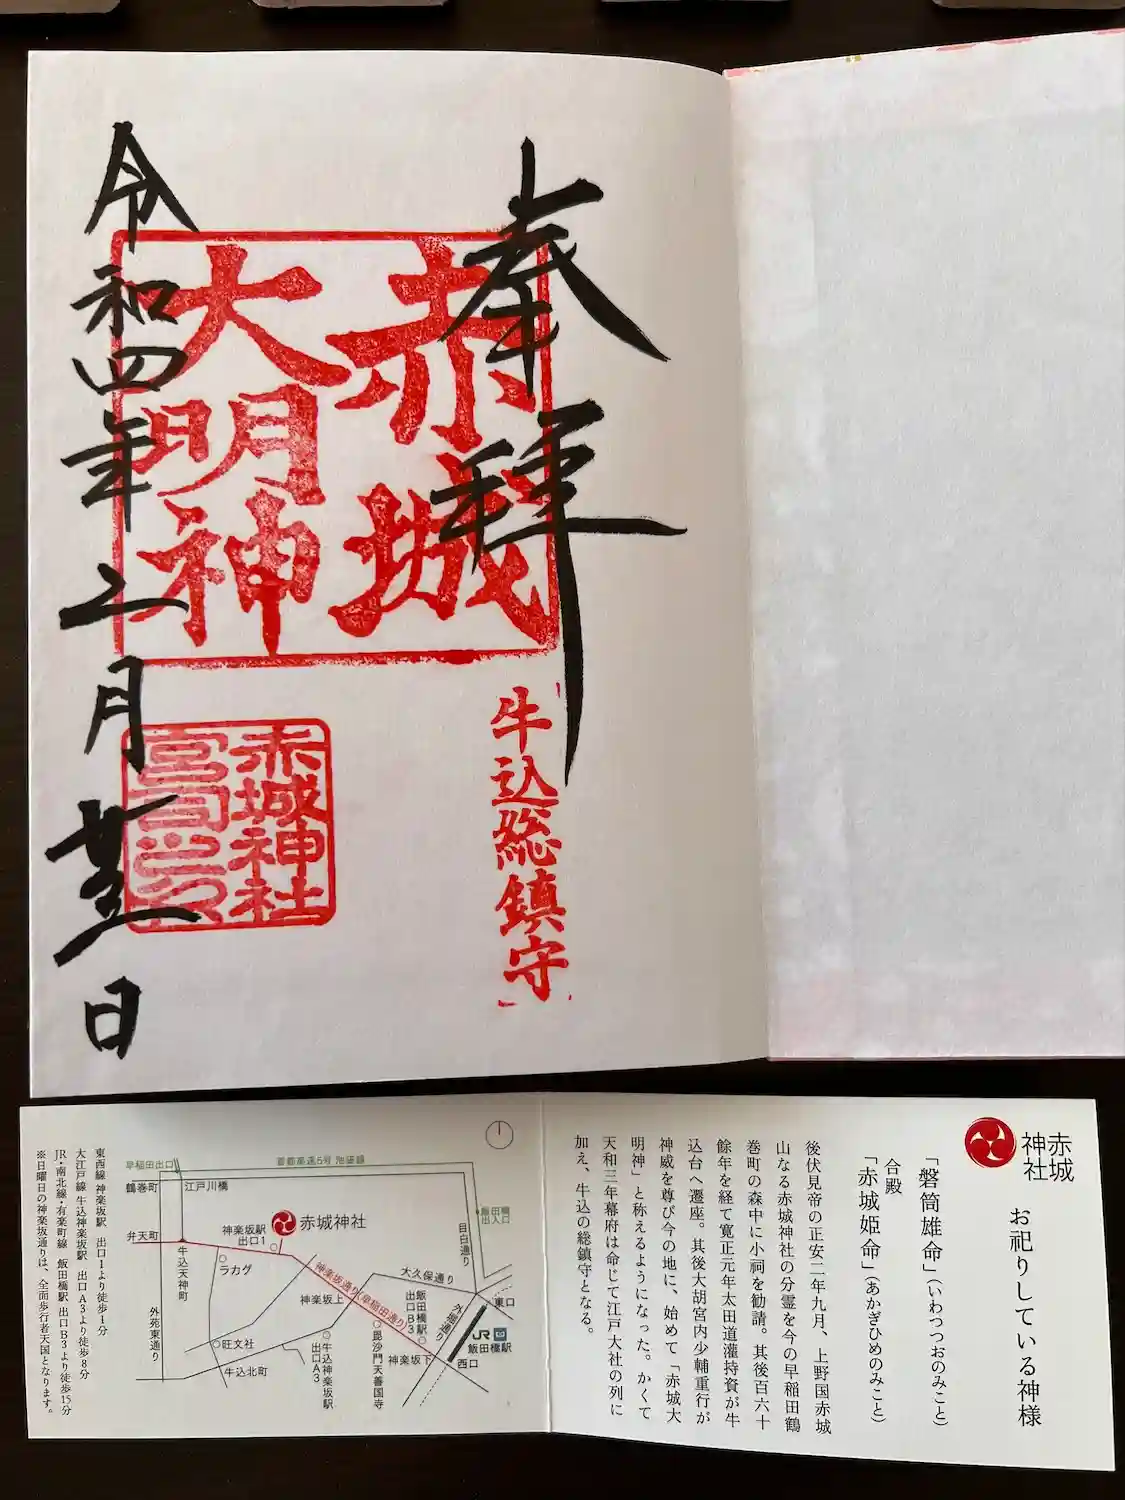 奉拝
赤城
大明神
牛込総鎮守
赤城神社
宮司之印
令和四年二月廿五日
赤城
神社
お祀りしている神様
「磐筒雄命」（いわつつおのみこと）
合殿
「赤城姫命」（あかぎひめのみこと）
後伏見帝の正安二年九月、上野国赤城
山なる赤城神社の分霊を今の早稲田鶴
巻町の森中に小祠を勧請。其後百六十
餘年を経て寛正元年太田道灌持資が牛
込台へ遷座。其後大胡宮内少輔重行が
神威を尊び今の地に、始めて「赤城大
明神」と称えるようになった。かくて
天和三年幕府は命じて江戸大社の列に
加え、牛込の総鎮守となる。
首都高速5号 池袋線
早稲田出口
飯田橋
出入口
鶴巻町
江戸川橋
目白通り
弁天町
神楽坂駅
出口1
赤城神社
牛込天神町
ラカグ
神楽坂通り(早稲田通り)
大久保通り
神楽坂上
飯田橋駅
出口B3
外堀通り
東口
JR
飯田橋駅
西口
外苑東通り
旺文社
牛込北町
牛込神楽坂駅
出口A3
毘沙門天善国寺
神楽坂下
東西線 神楽坂駅 出口1より徒歩1分
大江戸線 牛込神楽坂駅 出口A3より徒歩8分
JR・南北線・有楽町線 飯田橋駅 出口B3より徒歩15分
※日曜日の神楽坂通りは、全面歩行者天国となります。